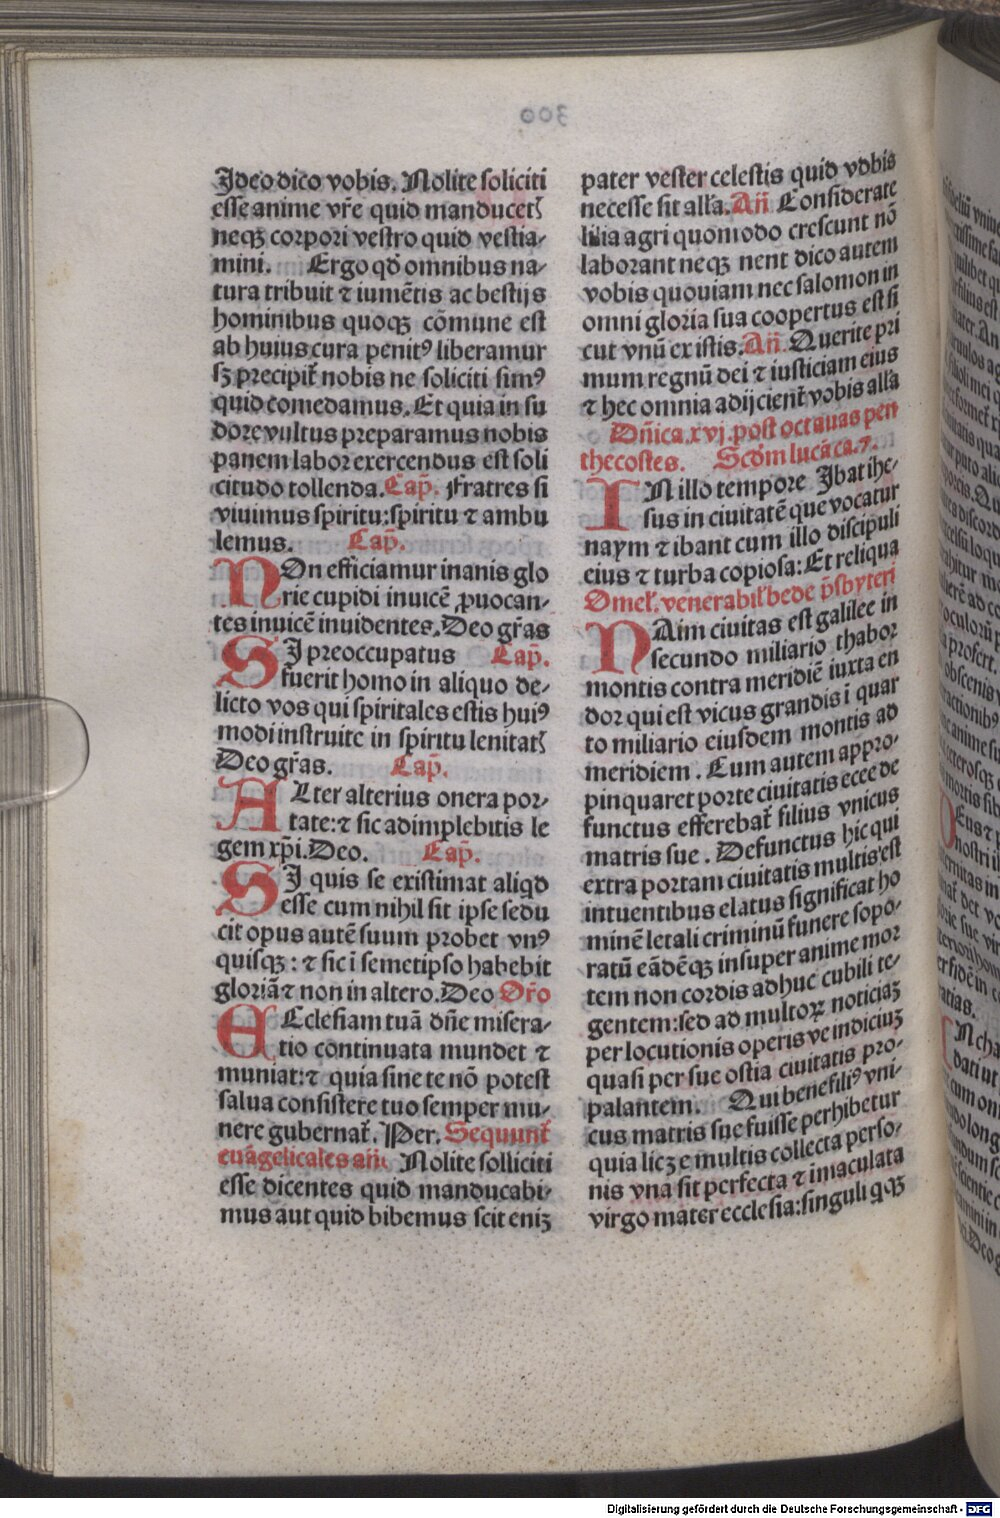 300
Ideo dico vobis. Nolite soliciti
esse anime vr̃e quid manducetꝭ
neqꝫ corpori vestro quid vestia⸗
mini. Ergo qď omnibus na⸗
tura tribuit ⁊ iumẽtis ac bestijs
hominibus quoqꝫ cõmune est
ab huius cura penitꝰ liberamur
sꝫ precipit̃ nobis ne soliciti simꝰ
quid comedamus. Et quia in su
dore vultus preparamus nobis
panem labor exercendus est soli
citudo tollenda. Cap̃. Fratres si
viuimus spiritu: spiritu ⁊ ambu
lemus. Cap̃.
NOn efficiamur inanis glo
rie cupidi inuicẽ ꝓuocan⸗
tes inuicẽ inuidentes. Deo gr̃as
SI preoccupatus Cap̃.
fuerit homo in aliquo de⸗
licto vos qui spiritales estis huiꝰ
modi instruite in spiritu lenitatꝭ
Deo gr̃as. Cap̃.
ALter alterius onera por⸗
tate: ⁊ sic adimplebitis le
gem xp̃i. Deo. Cap̃.
SI quis se existimat aliqď
esse cum nihil sit ipse sedu
cit opus autẽ suum probet vnꝰ
quisqꝫ: ⁊ sic ĩ semetipso habebit
gloriã ⁊ non in altero. Deo Or̃o
ECclesiam tuã dñe misera⸗
tio continuata mundet ⁊
muniat: ⁊ quia sine te nõ potest
salua consistere tuo semper mu⸗
nere gubernat̃. Per. Sequunt̃
euãgelicales añ. Nolite solliciti
esse dicentes quid manducabi⸗
mus aut quid bibemus scit enīꝫ
pater vester celestis quid vobis
necesse sit all'a. Añ. Considerate
lilia agri quomodo crescunt nõ
laborant neqꝫ nent dico autem
vobis quouiam nec salomon in
omni gloria sua coopertus est si
cut vnũ ex istis. Añ. Querite pri
mum regnũ dei ⁊ iusticiam eius
⁊ hec omnia adijcient̃ vobis all'a
Dñica .xvj. post octauas pen
thecostes. Scďm lucã ca. 7.
IN illo tempore Ibat ihe⸗
sus in ciuitatẽ que vocatur
naym ⁊ ibant cum illo discipuli
eius ⁊ turba copiosa: Et reliqua
Omel'. venerabil' bede p̃sbyteri
NAim ciuitas est galilee in
secundo miliario thabor
montis contra meridiẽ iuxta en
dor qui est vicus grandis ĩ quar
to miliario eiusdem montis ad
meridiem. Cum autem appro⸗
pinquaret porte ciuitatis ecce de
functus efferebat̃ filius vnicus
matris sue. Defunctus hic qui
extra portam ciuitatis multis est
intuentibus elatus significat ho
minẽ letali criminũ funere sopo⸗
ratũ eãdẽqꝫ insuper anime mor
tem non cordis adhuc cubili te⸗
gentem: sed ad multoꝝ noticiaꝫ
per locutionis operisve indiciuꝫ
quasi per sue ostia ciuitatis pro⸗
palantem. Qui bene filiꝰ vni⸗
cus matris sue fuisse perhibetur
quia licꝫ e multis collecta perso⸗
nis vna sit perfecta ⁊ imaculata
virgo mater ecclesia: singuli qꝫqꝫ
Digitalisierung gefördert durch die Deutsche Forschungsgemeinschaft - DFG